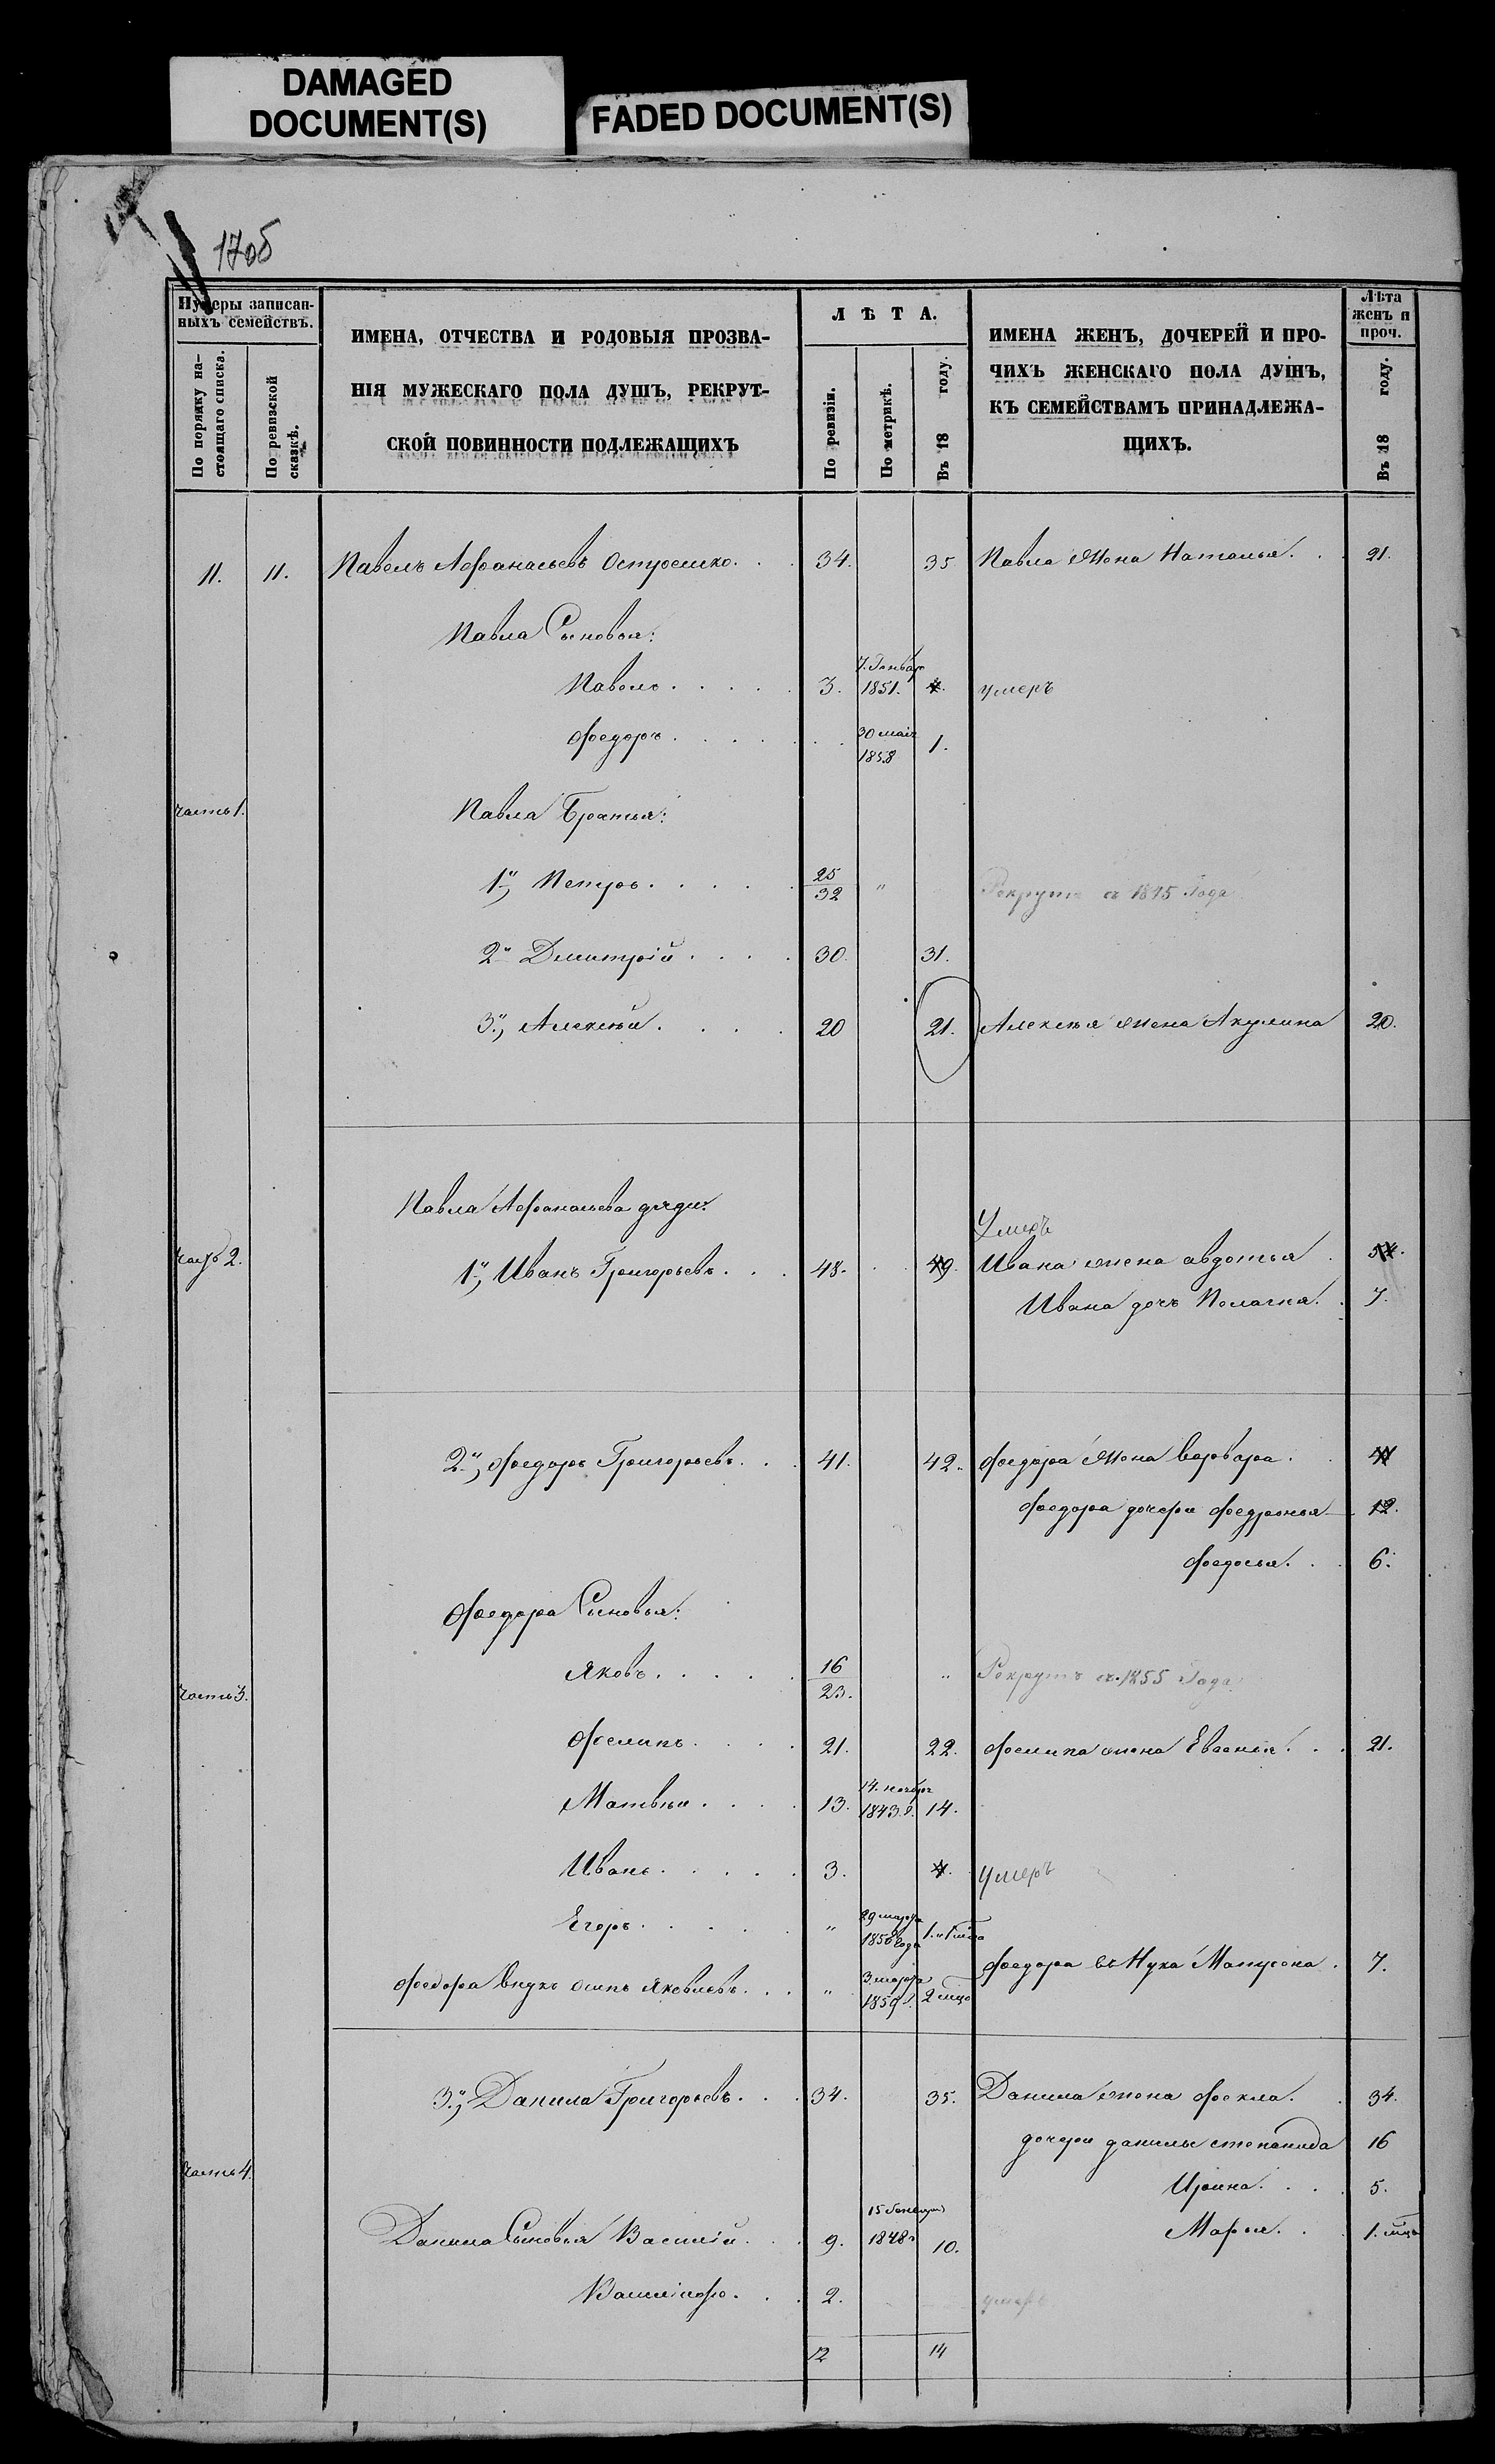 DAMAGED
DOCUMENT(S)
FADED DOCUMENT(S)
17об
Нумеры записан-
ныхъ семействъ.
По порядку на-
стоящаго списка.
По ревизской
сказкѣ.
ИМЕНА, ОТЧЕСТВА И РОДОВЫЯ ПРОЗВА-
НІЯ МУЖЕСКАГО ПОЛА ДУШЪ, РЕКРУТ-
СКОЙ ПОВИННОСТИ ПОДЛЕЖАЩИХЪ
ЛѢТА.
По ревизіи.
По метрикѣ.
Въ 18 году.
ИМЕНА ЖЕНЪ, ДОЧЕРЕЙ И ПРО-
ЧИХЪ ЖЕНСКАГО ПОЛА ДУШЪ,
КЪ СЕМЕЙСТВАМЪ ПРИНАДЛЕЖА-
ЩИХЪ.
Лѣта
женъ и
проч.
Въ 18 году.
11. 11. Павелъ Афанасьевъ 34. 35 Павла жена Наталья. 21.
Павла Сыновья:
Павелъ 3. 7. Генвар 1851. 4. умеръ
Федоръ 30 маія 1858 1.
часть 1.
Павла Братья:
1й, Петръ 25/32 " Рекрутъ съ 1845 Года
2й Дмитрій 30. 31.
3й, Алексѣй 20 21. Алексѣя жена Акулина 20.
Павла Афанасьева дяди:
Умеръ
часть 2. 1й, Иванъ Григорьевъ 48. 49. Ивана жена авдотья 54.
Ивана дочь Пелагея. 7.
2й, Федоръ Григорьевъ 41. 42. Федора жена варвара 41
Федора дочери Федронья 12.
Федосья. 6.
Федора Сыновья:
Яковъ 16/23. " Рекрутъ съ 1855 Года
часть 3.
Филипъ 21. 22. Филипа жена Евгенья 21.
Матвѣй 13. 14. ноября 1843 г. 14.
Иванъ 3. 4. умеръ
Егоръ " 29 марта 1858 года 1. и 1 мѣс
Федора внука Матрона 7.
Федора внукъ осипъ Яковлевъ " 3 марта 1859 г. 2 мѣс
3й, Данила Григорьевъ 34. 35. Данила жена Фекла. 34.
дочери данилы степанида 16
часть 4.
Ирина 5.
Данила Сыновья Василій 9. 15 Генваря 1848 г 10. Марья 1. мѣс
2. умеръ
12 14